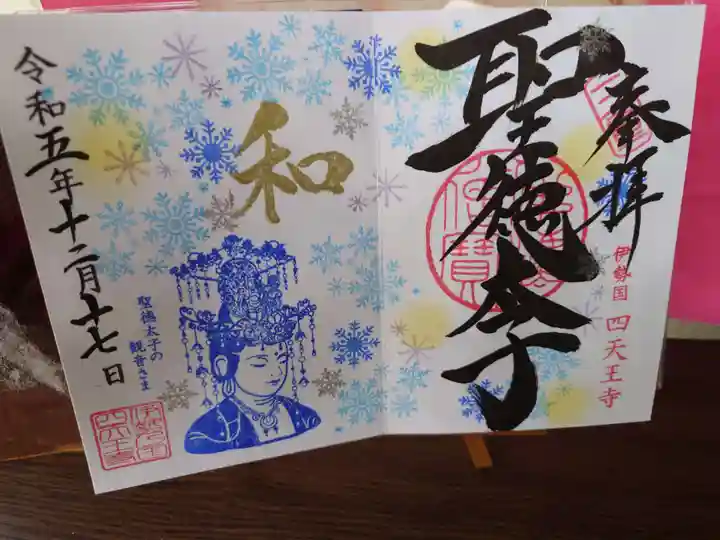 奉拝
伊勢国 四天王寺
聖徳太子
和
聖徳太子の
観音さま
令和五年十二月十七日